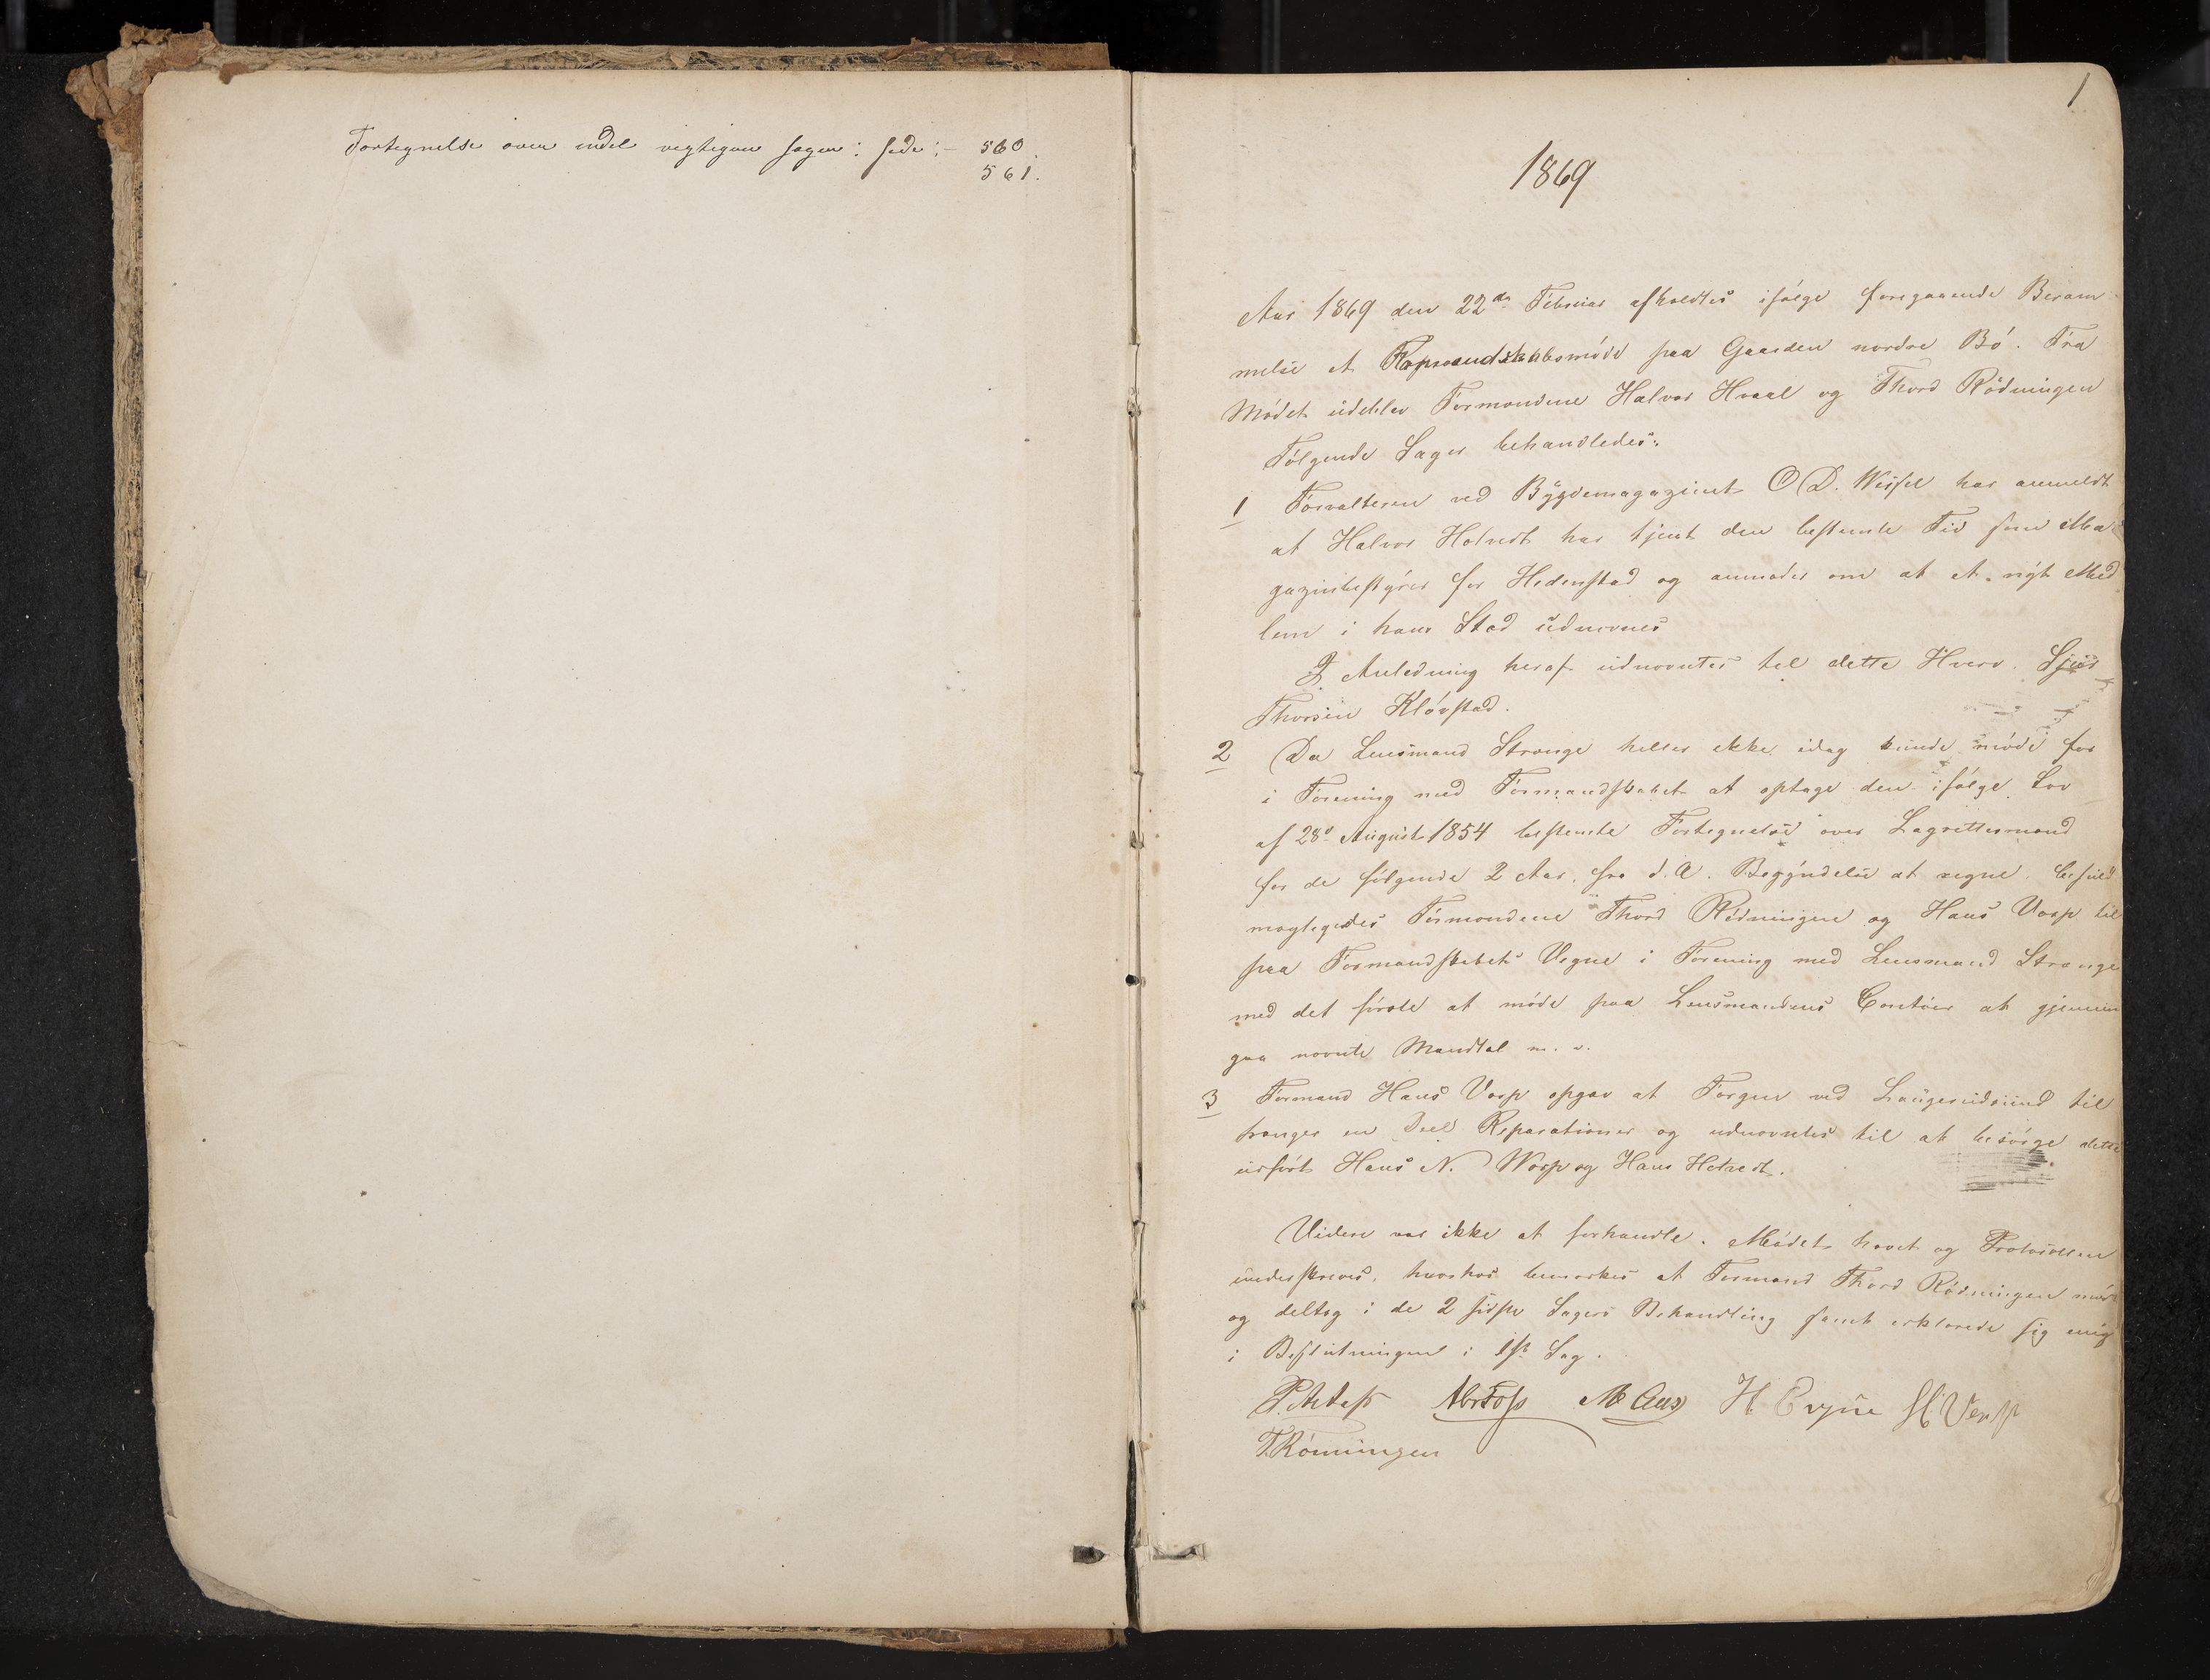 Fortegnelse over endel vigtigere sager: side:- 560
561.
1
1869
Aar 1869 den 22de Februar afholdtes ifølge foregaaende Beram-
melse et Formandskabsmøde paa Gaarden nordre Bö. Fra
Mödet udeblev Formændene Halvor Hvaal og Thord Rödningen
Fölgende Sager behandledes:
1 Forvalteren ved Bygdemagazinet O D. Wessel har anmeldt
at Halvor Hotvedt har tjent den bestemte Tid som Ma-
gazinbestyrer for Hedenstad og anmodes om at et nyt Med
lem i hans Sted udnævnes
I Anledning heraf udnævntes til dette Hverv
Thorsen Klövstad.
2 Da Lensmand Strange heller ikke idag kunde möde for
i Forening med Formandskabet at optage den ifölge Lov
af 28de August 1854 bestemte Fortegnelse over Lagrettesmænd
for de fölgende 2 Aar fra d. A. Begyndelse at regne, befuld
mægtigedes Formændene Thord Rödningen og Hans Vosp til
paa Formandskabets Vegne i Forening med Lensmand Strange
med det förste at möde paa Lensmandens Contoir at gjennem
gaa nævnte Mandtal m. v.
3 Formand Hans Vosp opgav at Færgen ved Laugesudsund til
trænger en Deel Reparationer og udnævntes til at besörge dette
udfört Hans N. Wosp og Hans Hotvedt.
Videre var ikke at forhandle. Mödet hævet og Protocollen
underskreves, hvorhos bemærkes at Formand Thord Rödningen möd
og deltog i de 2 sidste Sagers Behandling samt erklærede sig enig
i Beslutningen i 1ste Sag.
M Aas H. H Vosp
T. Rönningen